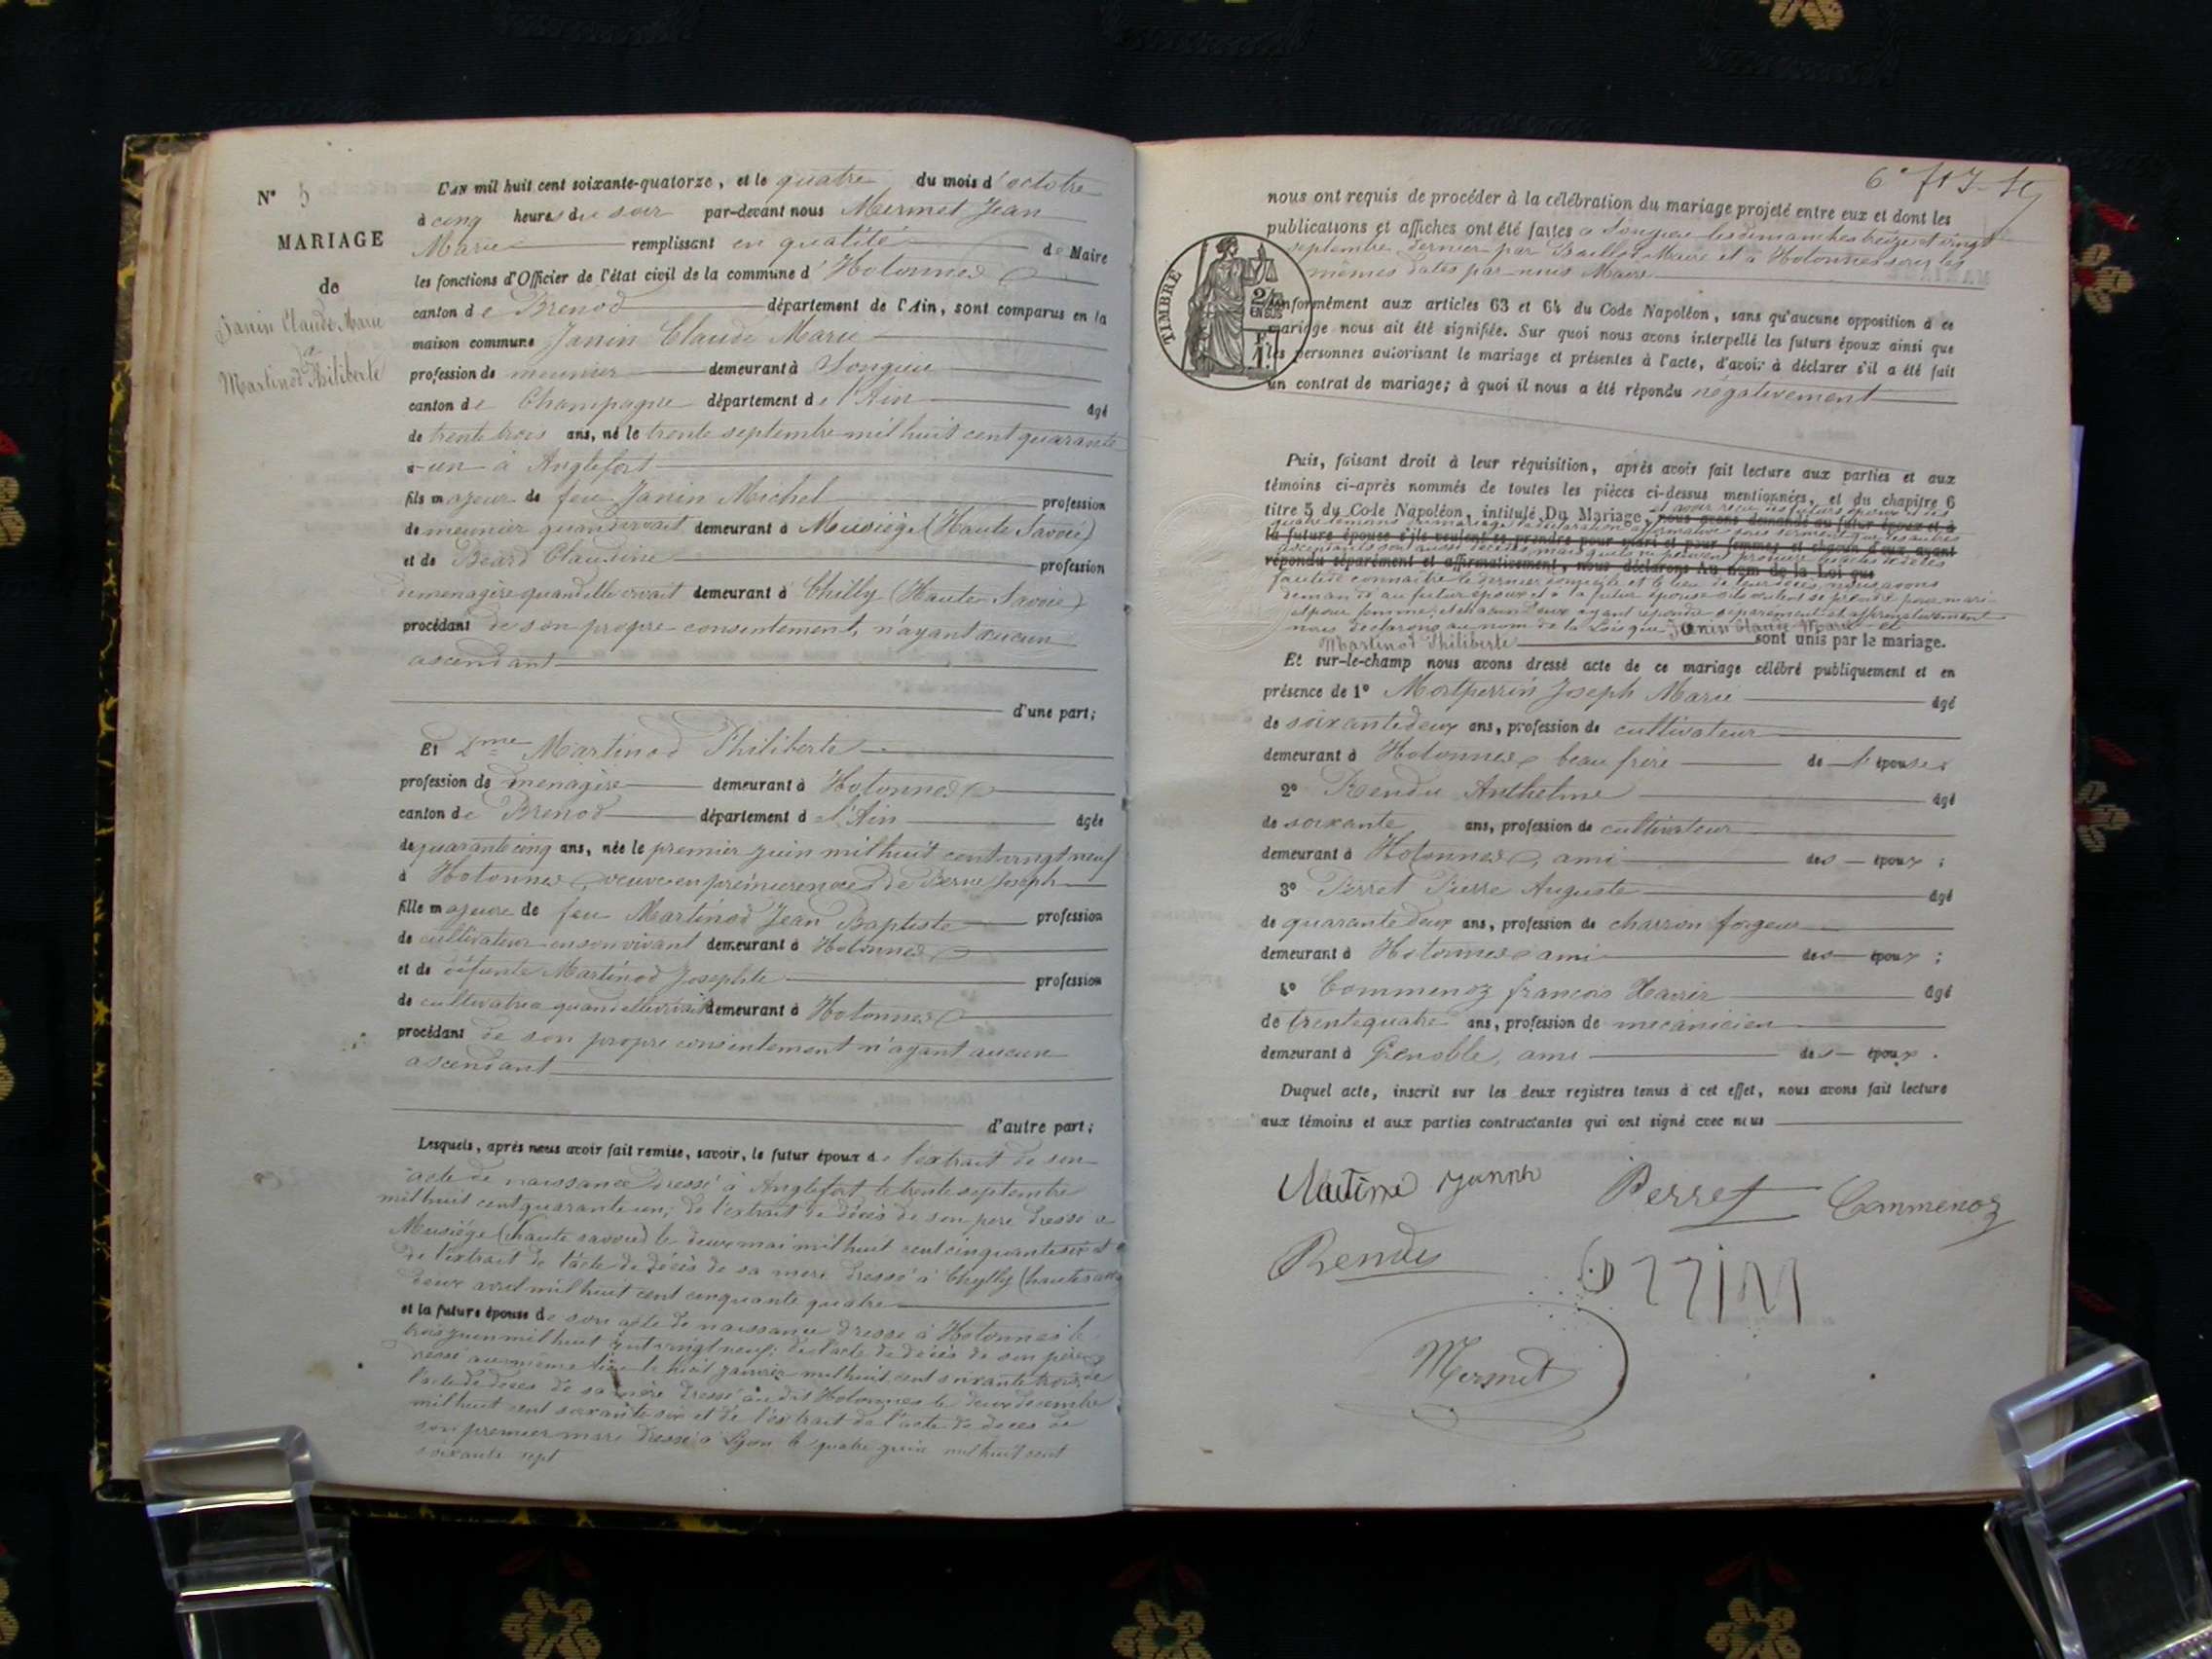 N° 5
MARIAGE
de
Janin Claude Marie
à
Martinod Philiberte
L'AN mil huit cent soixante-quatorze, et le quatre du mois d'octobre
à cinq heures du soir par-devant nous Mermet Jean
Marie remplissant en qualité de Maire
les fonctions d'Officier de l'état civil de la commune d'Hotonnes
canton de Brenod département de l'Ain, sont comparus en la
maison commune Janin Claude Marie
profession de meunier demeurant à Songieu
canton de Champagne département de l'Ain âgé
de trente trois ans, né le trente septembre mil huit cent quarante
un à Anglefort
fils majeur de feu Janin Michel profession
de meunier quand vivait demeurant à Musiège (Haute Savoie)
et de Béard Claudine profession
de menagère quand elle vivait demeurant à Chilly (Haute Savoie)
procédant de son propre consentement, n'ayant aucun
ascendant
d'une part;
Et 2me Martinod Philiberte
profession de menagère demeurant à Hotonnes
canton de Brenod département de l'Ain âgée
de quarante cinq ans, née le premier juin mil huit cent vingt neuf
à Hotonnes, veuve en premières noces de Joseph
fille majeure de feu Martinod Jean Baptiste profession
de cultivateur en son vivant demeurant à Hotonnes
et de défunte Martinod Josephte profession
de cultivatrice quand elle vivait demeurant à Hotonnes
procédant de son propre consentement n'ayant aucun
ascendant
d'autre part;
Lesquels, après nous avoir fait remise, savoir, le futur époux de l'extrait de son
acte de naissance dressé à Anglefort le trente septembre
mil huit cent quarante un; de l'extrait de décès de son père dressé à
Musiège (haute savoie) le deux mai mil huit cent cinquante six et
de l'extrait de l'acte de décès de sa mère dressé à Chylly (haute savoie)
deux avril mil huit cent cinquante quatre
et la future épouse de son acte de naissance dressé à Hotonnes le
trois juin mil huit cent vingt neuf; de l'acte de décès de son père
dressé au même lieu le huit janvier mil huit cent soixante trois, de
l'acte de décès de sa mère dressé au dit Hotonnes le deux decembre
mil huit cent soixante six et de l'extrait de l'acte de décès de
son premier mari dressé à Lyon le quatre juin mil huit cent
soixante sept
nous ont requis de procéder à la célébration du mariage projeté entre eux et dont les
publications et affiches ont été faites à Songieu les dimanches treize et vingt
septembre dernier par Maire et à Hotonnes sous les
mêmes dates par nous Maire
TIMBRE
2/10
EN SUS
1 F.
conformément aux articles 63 et 64 du Code Napoléon, sans qu'aucune opposition à ce
mariage nous ait été signifiée. Sur quoi nous avons interpellé les futurs époux ainsi que
les personnes autorisant le mariage et présentes à l'acte, d'avoir à déclarer s'il a été fait
un contrat de mariage; à quoi il nous a été répondu négativement
Puis, faisant droit à leur réquisition, après avoir fait lecture aux parties et aux
témoins ci-après nommés de toutes les pièces ci-dessus mentionnées, et du chapitre 6
titre 5 du Code Napoléon, intitulé Du Mariage, nous avons demandé au futur époux et à
la future épouse s'ils veulent se prendre pour mari et pour femme, et chacun d'eux ayant
répondu séparément et affirmativement, nous déclarons Au nom de la Loi que
faute de connaître le dernier domicile et le lieu de leur décès, nous avons
demandé au futur époux et à la future épouse s'ils veulent se prendre pour mari
et pour femme, et chacun d'eux ayant répondu séparément et affirmativement
nous déclarons au nom de la Loi que Janin Claude Marie et
Martinod Philiberte sont unis par le mariage.
Et sur-le-champ nous avons dressé acte de ce mariage célébré publiquement et en
présence de 1° Montperrin Joseph Marie âgé
de soixante deux ans, profession de cultivateur
demeurant à Hotonnes, beau frère de l'épouse
2° Rendu Anthelme âgé
de soixante ans, profession de cultivateur
demeurant à Hotonnes, ami des époux;
3° Perret Pierre Auguste âgé
de quarante deux ans, profession de charron forgeur
demeurant à Hotonnes ami des époux;
4° Commenoz françois Xavier âgé
de trente quatre ans, profession de mécanicien
demeurant à Grenoble, ami des époux.
Duquel acte, inscrit sur les deux registres tenus à cet effet, nous avons fait lecture
aux témoins et aux parties contractantes qui ont signé avec nous
Perret Commenoz
Rendu
Mermet